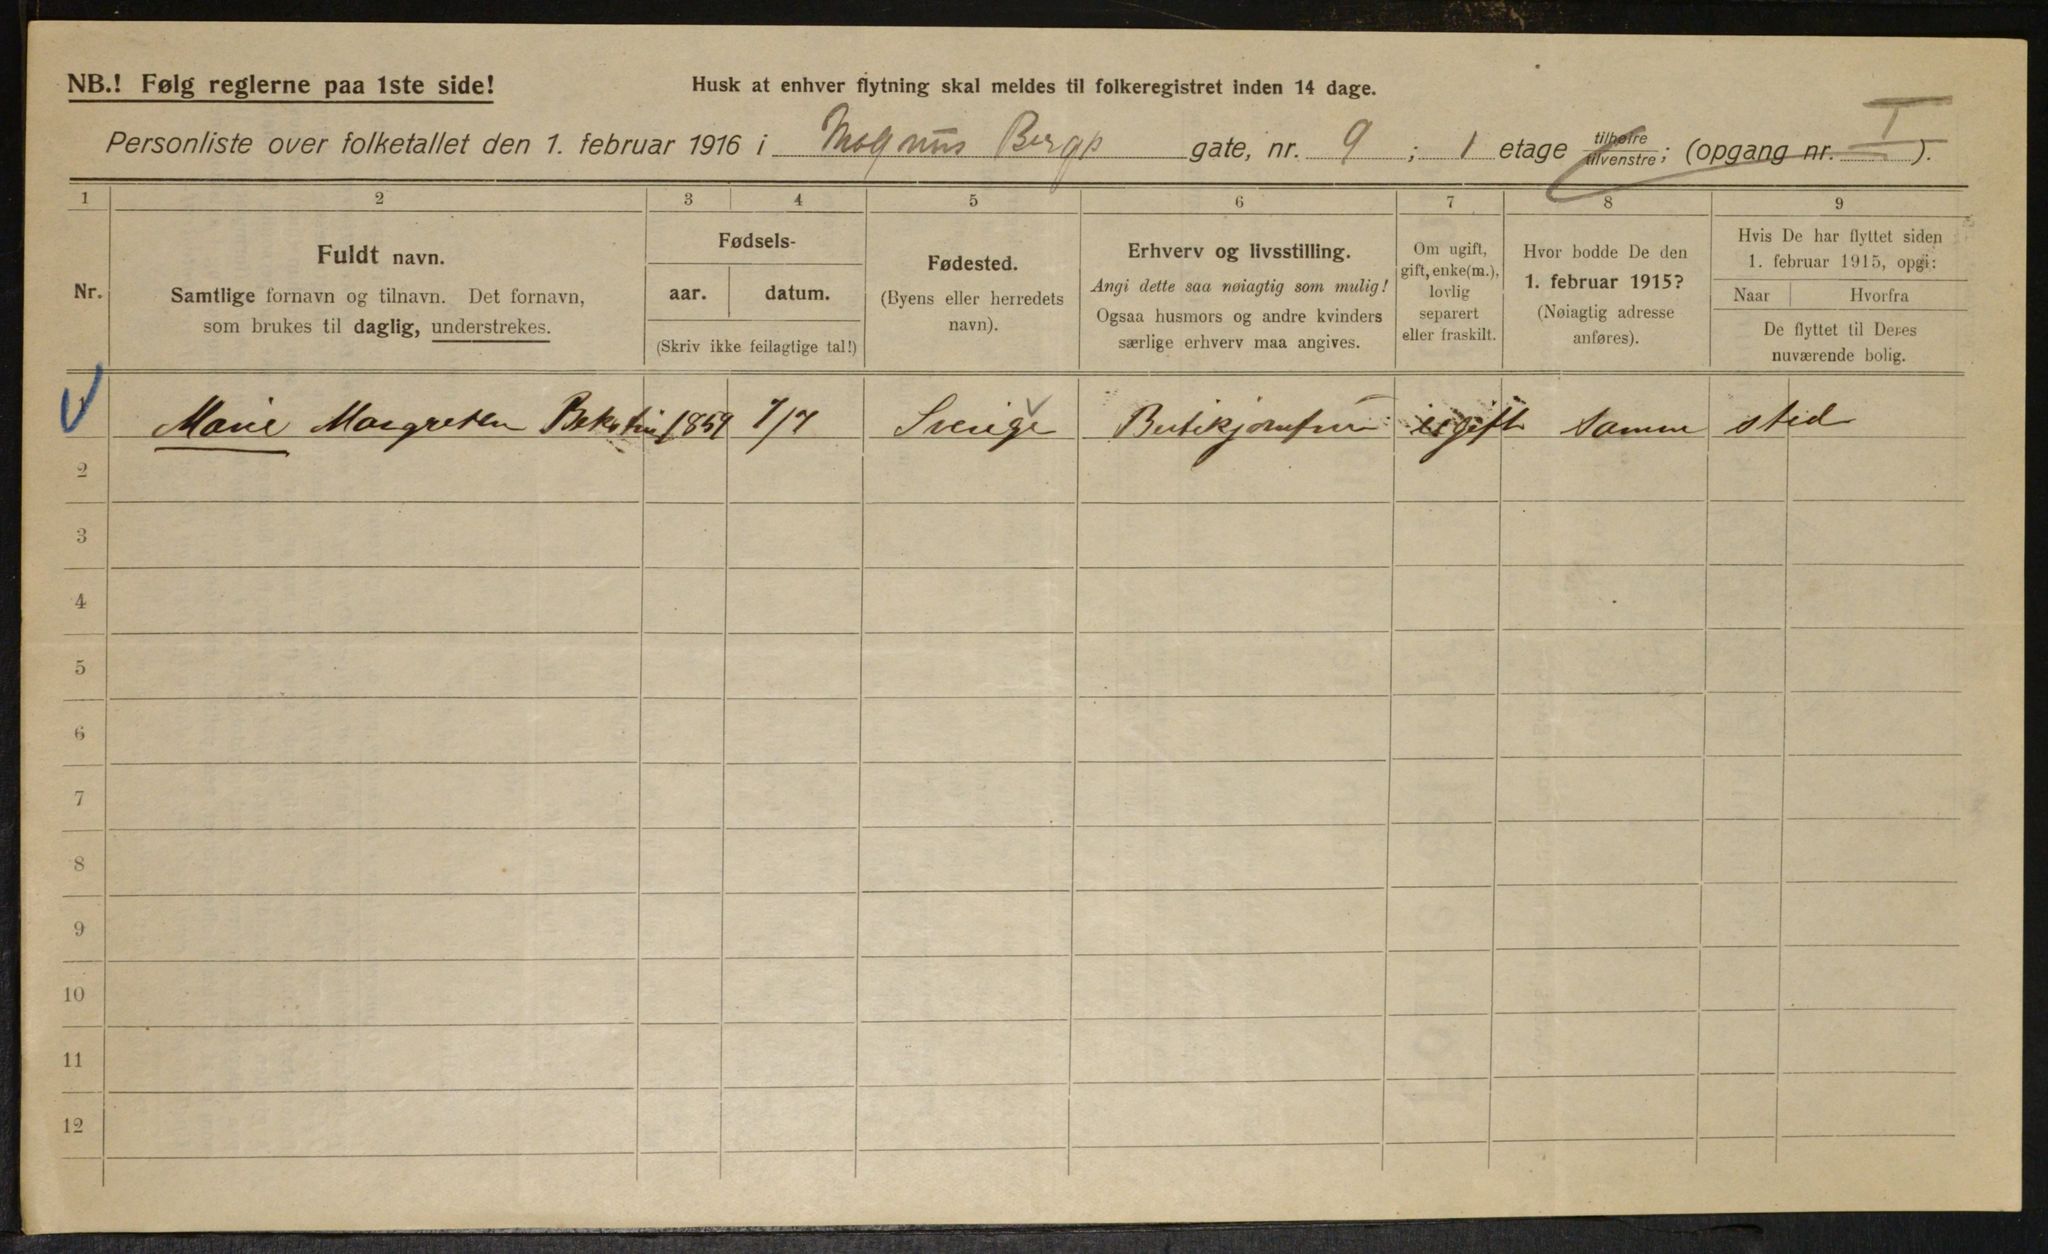 NB.! Følg reglerne paa 1ste side!
Husk at enhver flytning skal meldes til folkeregistret inden 14 dage.
Personliste over folketallet den 1. februar 1916 i Magnus Bergs gate, nr. 9 ; 1 etage tilhøire tilvenstre; (opgang nr. I ).
1 2 3 4 5 6 7 8 9
Nr.
Fuldt navn.
Samtlige fornavn og tilnavn. Det fornavn,
som brukes til daglig, understrekes.
Fødsels-
aar. datum.
(Skriv ikke feilagtige tal!)
Fødested.
(Byens eller herredets
navn).
Erhverv og livsstilling.
Angi dette saa nøiagtig som mulig!
Ogsaa husmors og andre kvinders
særlige erhverv maa angives.
Om ugift,
gift, enke(m.),
lovlig
separert
eller fraskilt.
Hvor bodde De den
1. februar 1915?
(Nøiagtig adresse
anføres).
Hvis De har flyttet siden
1. februar 1915, opgi:
Naar Hvorfra
De flyttet til Deres
nuværende bolig.
1 Marie Margreten 1859 7/7 Sverige Butikjomfru ugift Samme sted
2
3
4
5
6
7
8
9
10
11
12